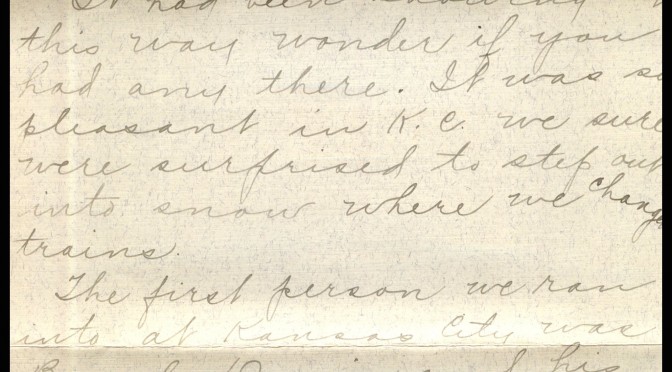 It had been snowing
this way wonder if you
had any there. It was so
pleasant in K. C. we sure
were surprised to step out
into snow where we changed
trains.
The first person we ran
into at Kansas City was
his